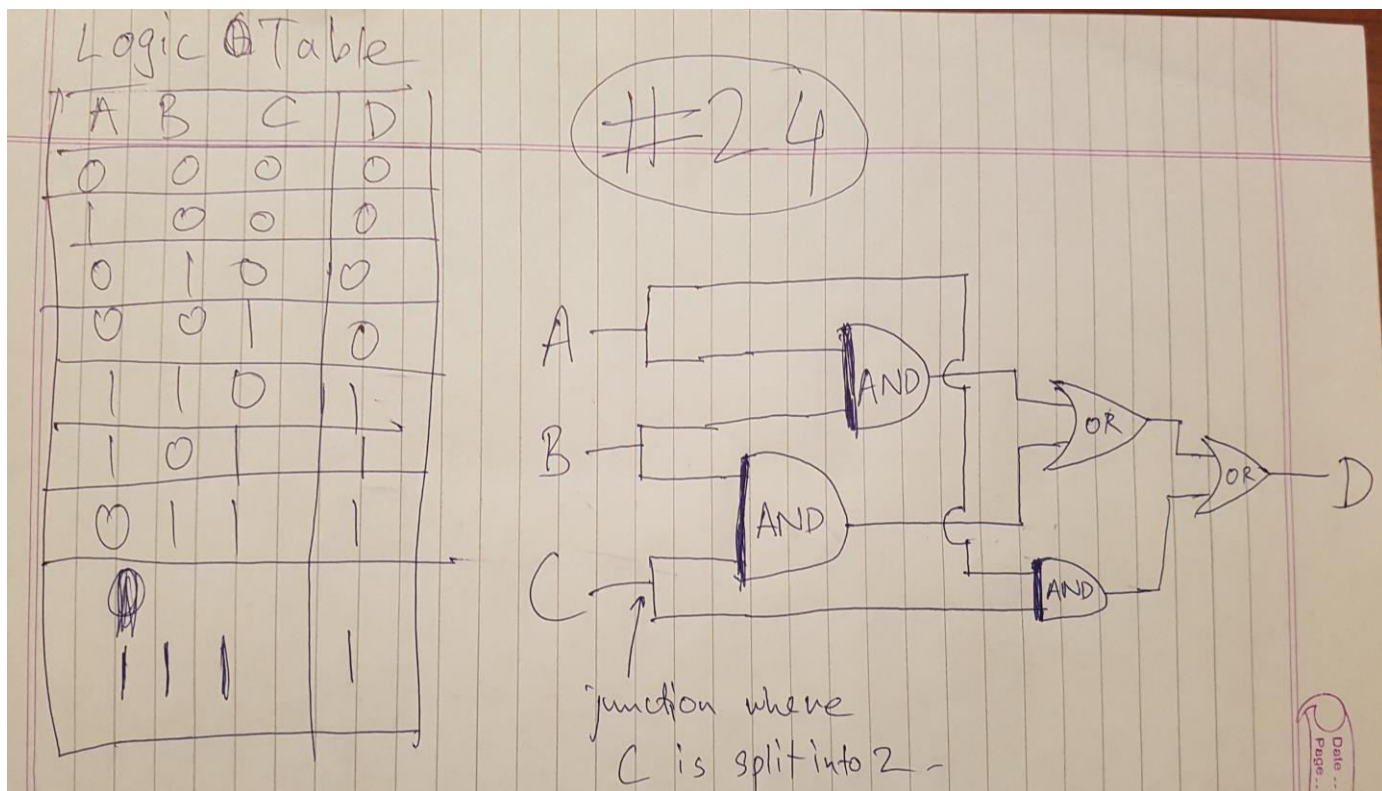 Logic Table
A B C D
0 0 0 0
1 0 0 0
0 1 0 0
0 0 1 0
1 1 0 1
1 0 1 1
0 1 1 1
1 1 1 1
#24
A
B
C
AND
AND
AND
OR
OR
D
junction where
C is split into 2 -
Date --
Page --